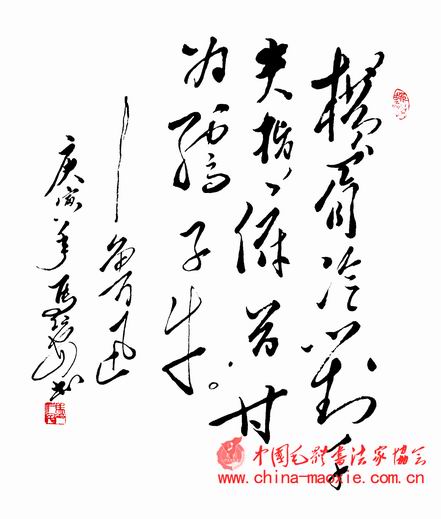 横眉冷对千
夫指、俯首甘
为孺子牛。
——鲁迅
庚寅年马书
中国毛体书法家协会
www.china-maoxie.com.cn